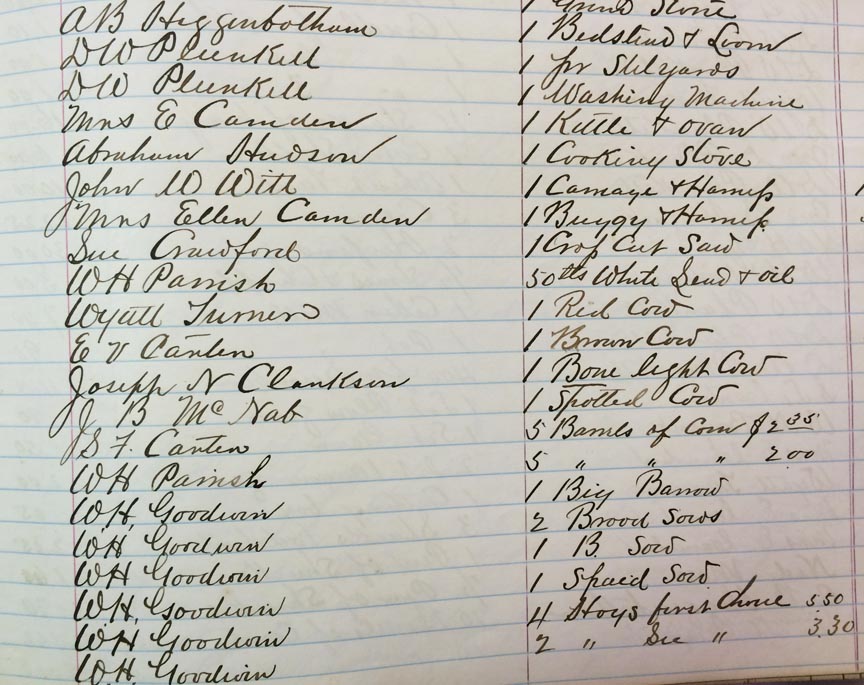 1 Grind Stone
AB Higgenbotham 1 Bedstead & Loom
DW Plunkett 1 pr Stilyards
DW Plunkett 1 Washing Machine
Mrs E Camden 1 Kittle & ovan
Abraham Hudson 1 Cooking Stove
John W Witt 1 Carriage & Harness
Mrs Ellen Camden 1 Buggy & Harness
Sue Crawford 1 Crop Cut Saw
WH Parrish 50 lbs White Lead & oil
Wyatt Turner 1 Red Cow
E V Carter 1 Brown Cow
Joseph N Clarkson 1 Bone light Cow
J B McNab 1 Spotted Cow
S F. Carter 5 Barrels of Corn $2.35
WH Parrish 5 " " " 2 00
W.H. Goodwin 1 Big Barrow
W.H. Goodwin 2 Brood Sows
WH Goodwin 1 B. Sow
W.H. Goodwin 1 Spaid Sow
WH Goodwin 4 Hogs first Choice 5.50
W.H. Goodwin 2 " Sec " 3.30